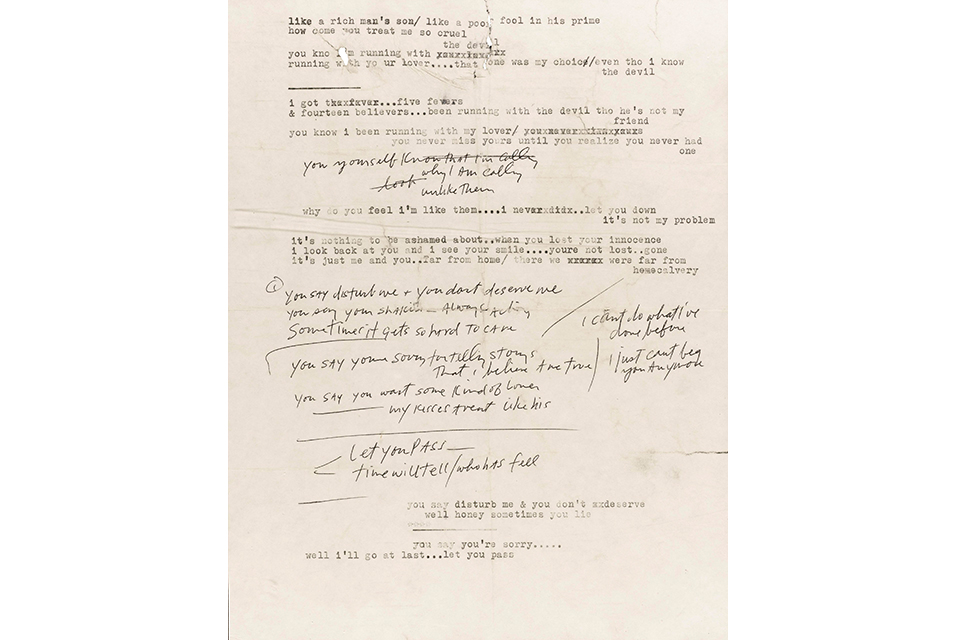 like a rich man's son/ like a poor fool in his prime
how come you treat me so cruel
the devil
you kno i'm running with
running with yo ur lover....that one was my choice/even tho i know
the devil
i got five fevers
& fourteen believers...been running with the devil tho he's not my
friend
you know i been running with my lover/
you never miss yours until you realize you never had
one
you yourself know that I'm calling
look why I am calling
unlike them
why do you feel i'm like them....i never didx..let you down
it's not my problem
it's nothing to be ashamed about..when you lost your innocence
i look back at you and i see your smile....youre not lost..gone
it's just me and you..far from home/ there we xxxxxx were far from
homecalvery
1 you say disturb me + you dont deserve me
you say your shakin — Always Acting
Sometimes it gets so hard to care
i can't do what i've
done before
you say youre sorry for telling storys
that i believe are true
i just cant beg
you Anymore
you say you want some kind of lover
my kisses arent like his
Let you PASS—
time will tell/who has fell
you say disturb me & you don't xxdeserve
well honey sometimes you lie
you say you're sorry.....
well i'll go at last...let you pass